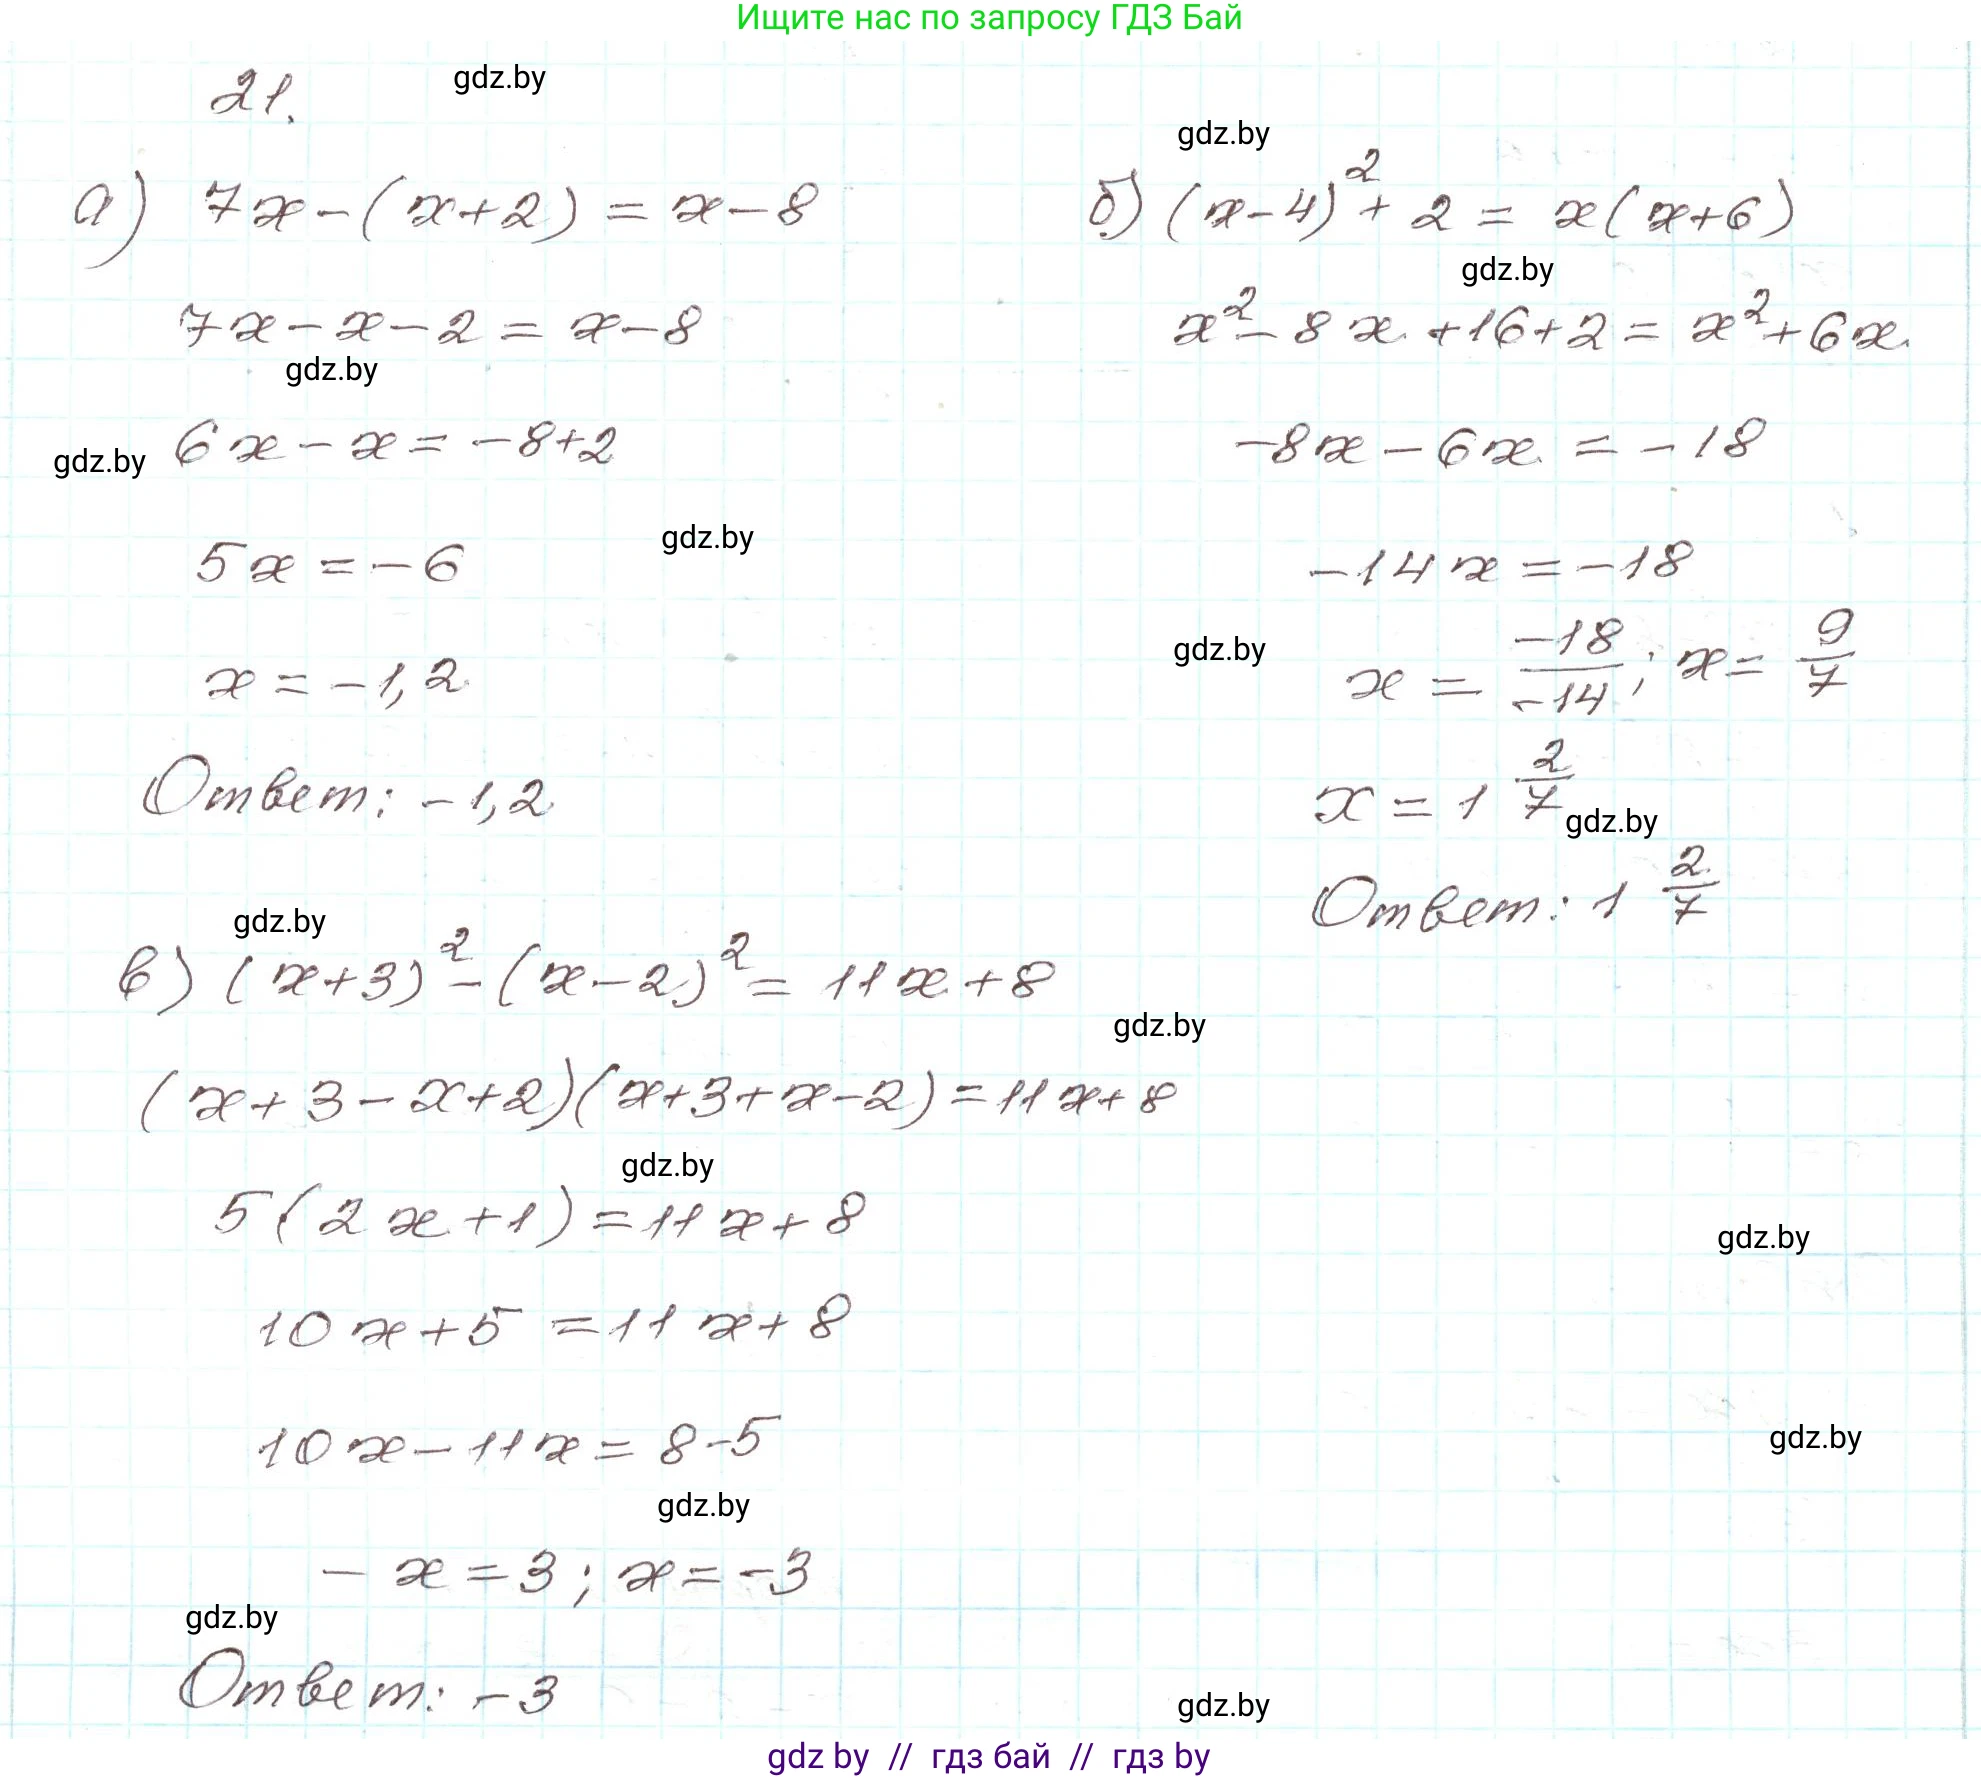 Ищите нас по запросу ГДЗ Бай
21.
gdz.by
а) 7x-(x+2)=x-8
7x-x-2=x-8
gdz.by
6x-x=-8+2
gdz.by
5x=-6
gdz.by
x=-1,2
Ответ: -1,2
gdz.by
б) (x-4)²+2=x(x+6)
gdz.by
x²-8x+16+2=x²+6x
-8x-6x=-18
-14x=-18
gdz.by
x=-18/-14; x=9/7
x=1 2/7
gdz.by
Ответ: 1 2/7
gdz.by
в) (x+3)²-(x-2)²=11x+8
gdz.by
(x+3-x+2)(x+3+x-2)=11x+8
gdz.by
5(2x+1)=11x+8
gdz.by
10x+5=11x+8
10x-11x=8-5
gdz.by
gdz.by
-x=3; x=-3
gdz.by
Ответ: -3
gdz.by
gdz by // гдз бай // гдз by